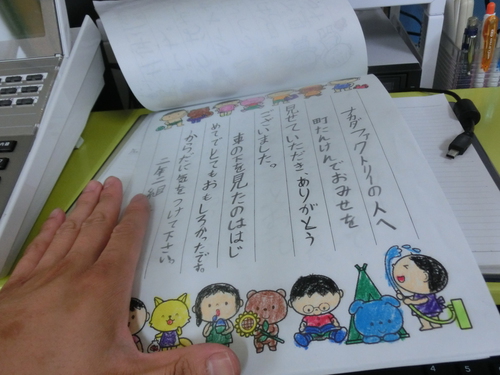 オカダファクトリーの人へ
町たんけんでおみせを
見せていただき、ありがとう
ございました。
車の下を見たのははじ
めてでとてもおもしろかったです。
からだに気をつけて下さい。
二年二組